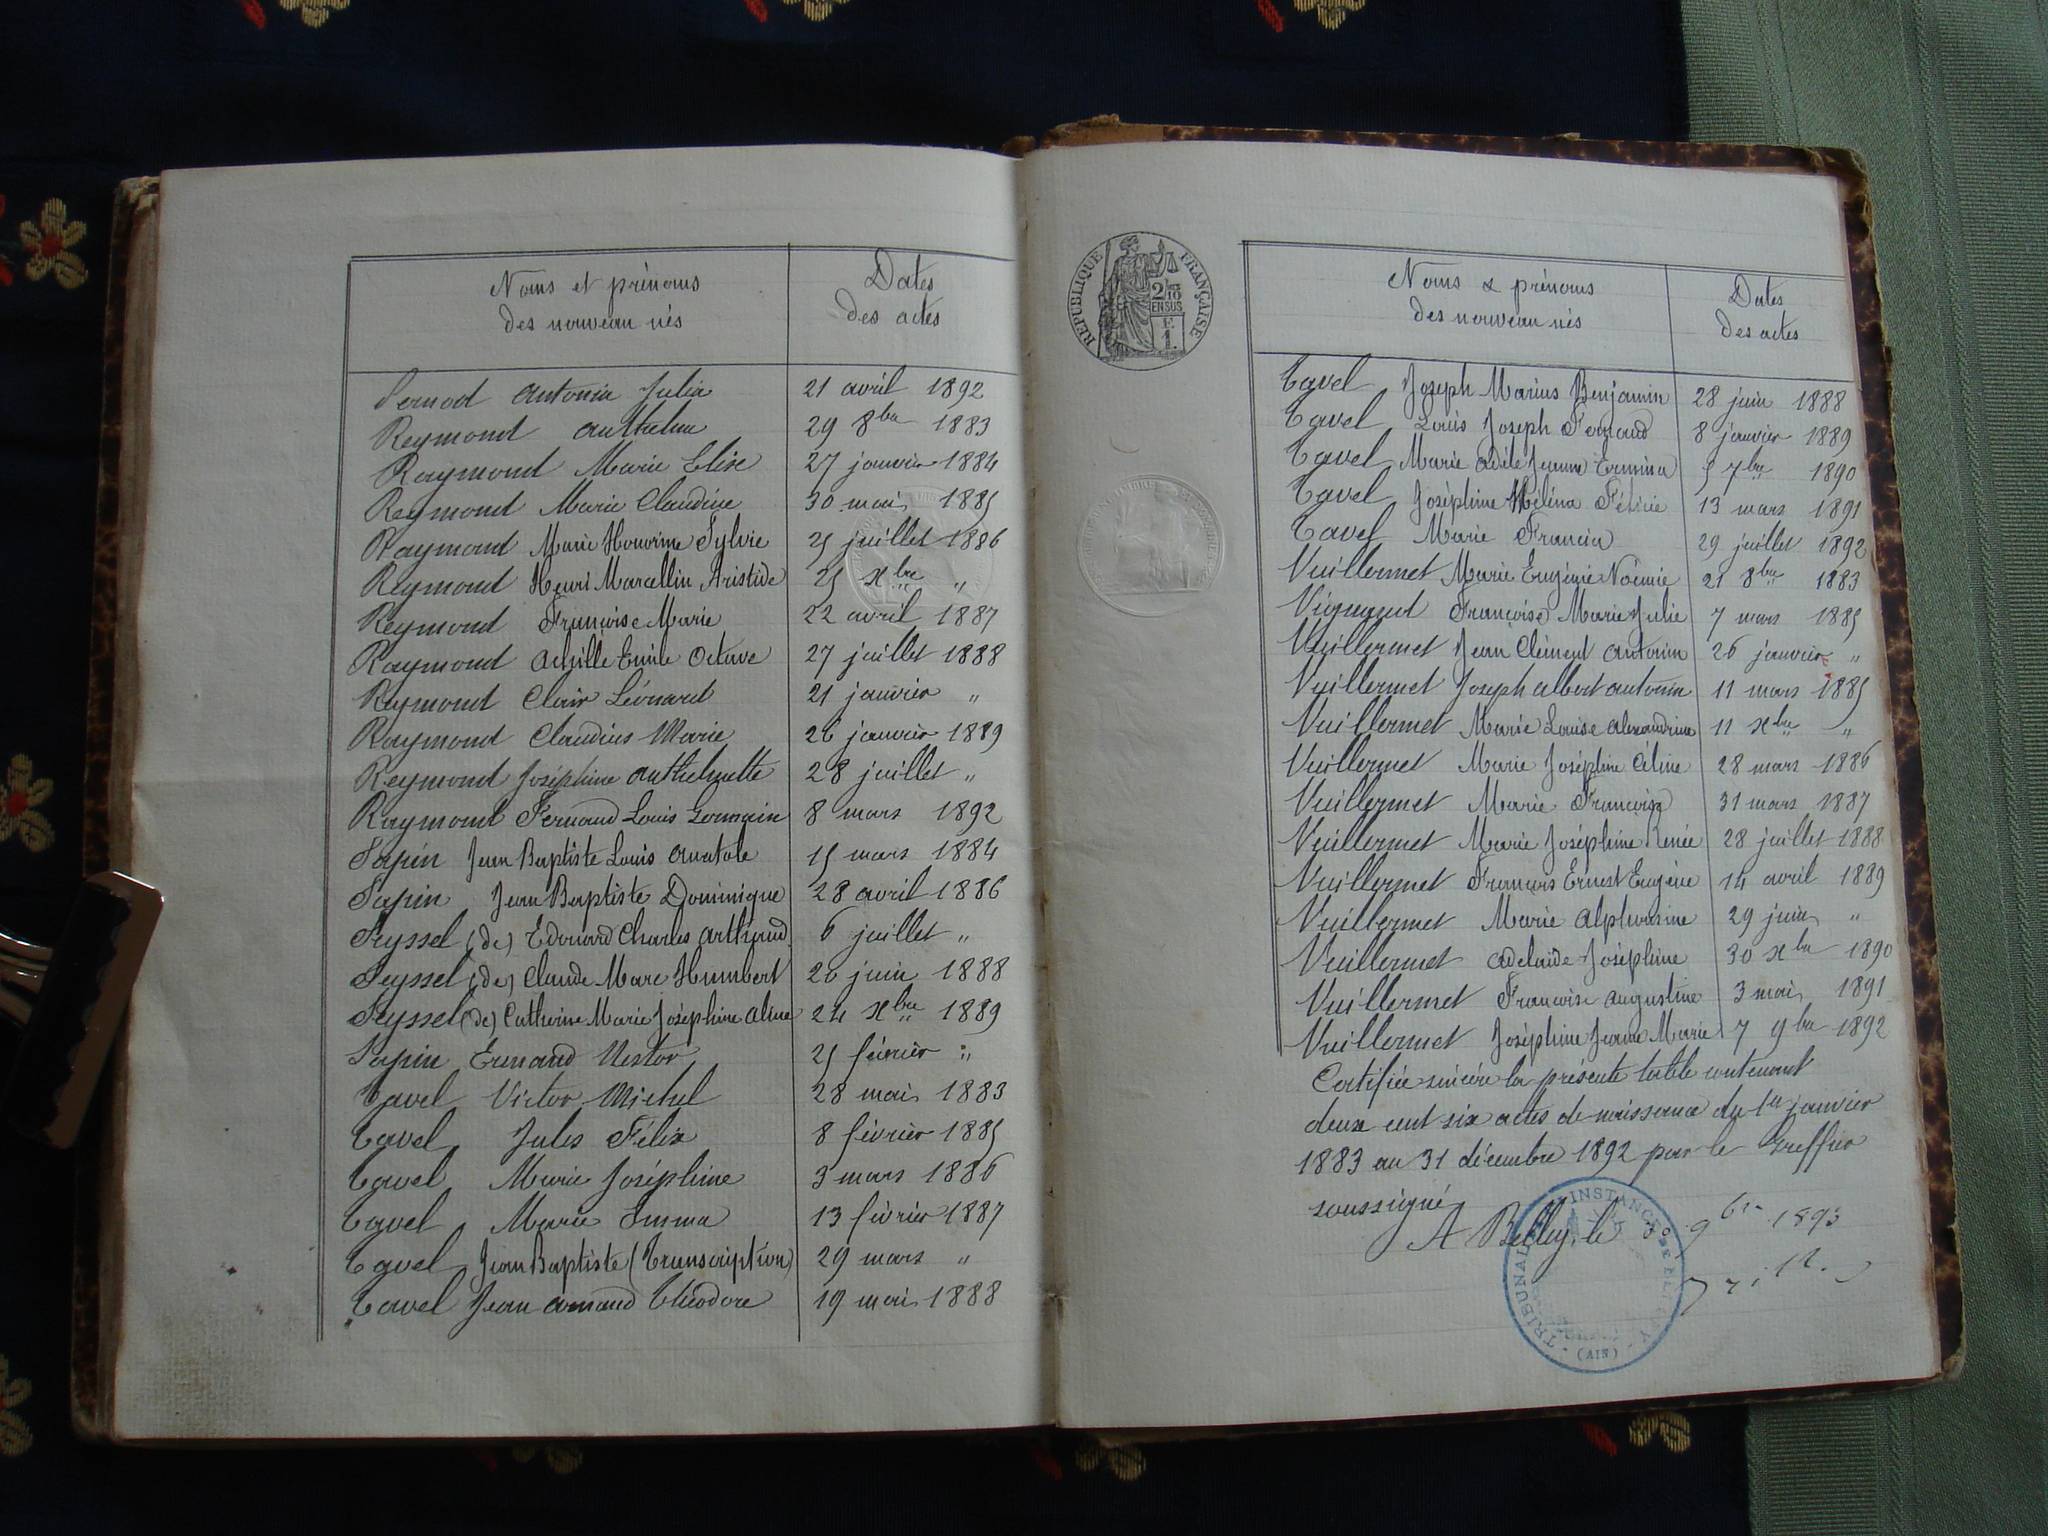 Noms et prénoms
des nouveau nés
Dates
des actes
Pernod Antonin Julia 21 avril 1892
Reymond Anthelme 29 8bre 1883
Raymond Marie Elise 27 janvier 1884
Reymond Marie Claudine 30 mai 1885
Raymond Marie Honorine Sylvie 25 juillet 1886
Reymond Henri Marcellin Aristide 25 Xbre "
Reymond Françoise Marie 22 avril 1887
Raymond Achille Emile Octave 27 juillet 1888
Raymond Clair Léonard 21 janvier "
Raymond Claudius Marie 26 janvier 1889
Reymond Joséphine Anthelmette 28 juillet "
Raymond Fernand Louis Germain 8 mars 1892
Sapin Jean Baptiste Louis Anatole 15 mars 1884
Sapin Jean Baptiste Dominique 28 avril 1886
Seyssel (de) Edouard Charles Arthaud 6 juillet "
Seyssel (de) Claude Marc Humbert 20 juin 1888
Seyssel (de) Catherine Marie Joséphine Aline 24 Xbre 1889
Sapin Ernand Nestor 25 février "
Tavel Victor Michel 28 mai 1883
Tavel Jules Félix 8 février 1885
Tavel Marie Joséphine 3 mars 1886
Tavel Marie Emma 13 février 1887
Tavel Jean Baptiste (Transcription) 29 mars "
Tavel Jean Armand Théodore 19 mai 1888
RÉPUBLIQUE FRANÇAISE
2/10
EN SUS
F.
1.
Noms & prénoms
des nouveau nés
Dates
des actes
Tavel Joseph Marius Benjamin 28 juin 1888
Tavel Louis Joseph Fernand 8 janvier 1889
Tavel Marie Adèle Jeanne Ermina 5 7bre 1890
Tavel Joséphine Mélina Félicie 13 mars 1891
Tavel Marie Francia 29 juillet 1892
Vuillermet Marie Eugénie Noémie 21 8bre 1883
Vignand Françoise Marie Julie 7 mars 1885
Vuillermet Jean Clément Antonin 26 janvier "
Vuillermet Joseph Albert Antonin 11 mars 1885
Vuillermet Marie Louise Alexandrine 11 Xbre "
Vuillermet Marie Joséphine Céline 28 mars 1886
Vuillermet Marie Françoise 31 mars 1887
Vuillermet Marie Joséphine Renée 28 juillet 1888
Vuillermet François Ernest Eugène 14 avril 1889
Vuillermet Marie Alphonsine 29 juin "
Vuillermet Adelaide Joséphine 30 Xbre 1890
Vuillermet Françoise Augustine 3 mai 1891
Vuillermet Joséphine Jeanne Marie 7 9bre 1892
Certifiée sincère la présente table contenant
deux cent six actes de naissance du 1er janvier
1883 au 31 décembre 1892 par le Greffier
soussigné
A Belley, le 30 9bre 1893
TRIBUNAL INSTANCE DE BELLEY
(AIN)